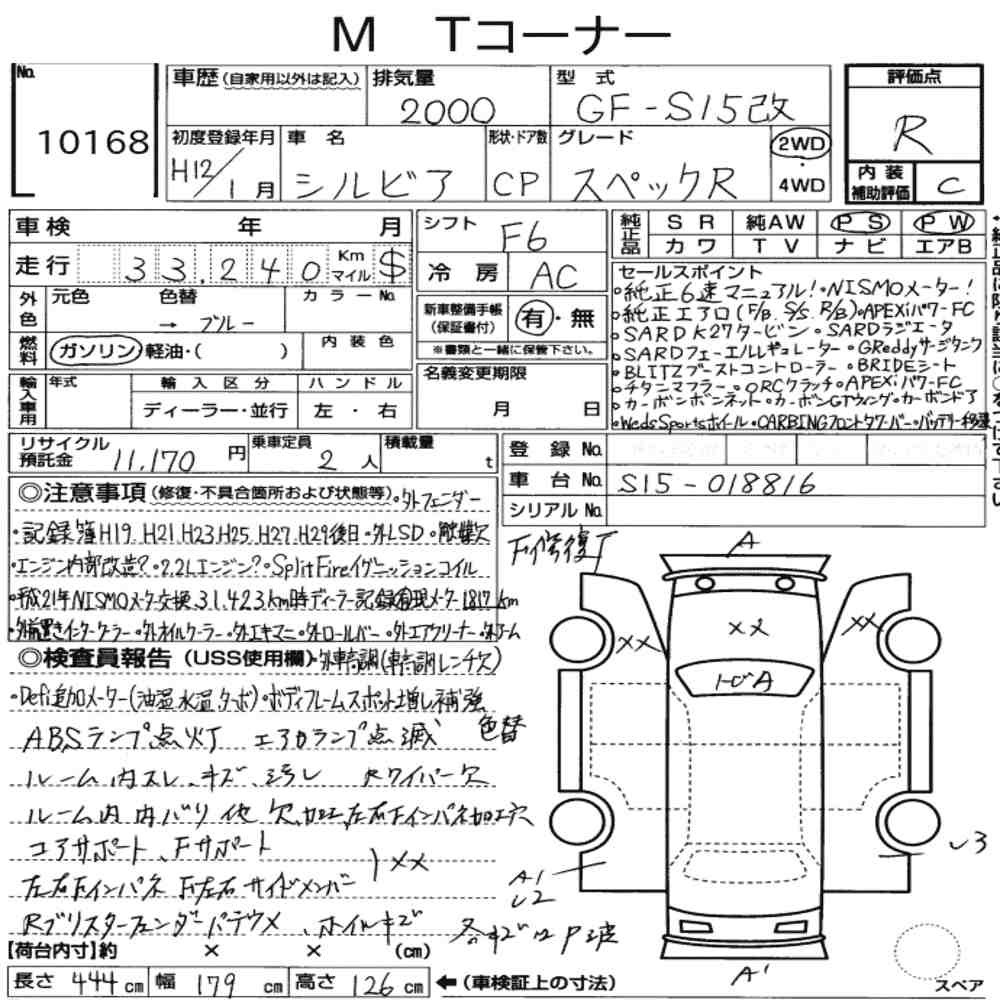 M Tコーナー
No. 10168
車歴 (自家用以外は記入) 排気量 2000 型式 GF-S15改
初度登録年月 H12/1月 車名 シルビア 形状・ドア数 CP グレード スペックR 2WD・4WD
評価点 R
内装補助評価 C
車検 年 月
走行 33,240 Km マイル $
シフト F6
冷房 AC
純正品 SR 純AW PS PW
カワ TV ナビ エアB
外色 元色 色替 → ブルー カラーNo.
燃料 ガソリン・軽油・( ) 内装色
新車整備手帳 (保証書付) 有・無
※書類と一緒に保管下さい。
輸入車用 年式 輸入区分 ディーラー・並行 ハンドル 左・右
名義変更期限 月 日
セールスポイント
・純正6速マニュアル!・NISMOメーター!
・純正エアロ(F/B. S/S. R/B)・APEXiパワーFC
・SARD K27タービン・SARDラジエータ
・SARDフューエルレギュレーター・GReddyサージタンク
・BLITZブーストコントローラー・BRIDEシート
・チタンマフラー・ORCクラッチ・APEXiパワーFC
・カーボンボンネット・カーボンGTウィング・カーボンドア
・WedsSportsホイール・CARBINGフロントタワーバー・バッテリー移設
リサイクル預託金 11,170円 乗車定員 2人 積載量 t
登録No.
車台No. S15-018816
シリアルNo.
◎注意事項 (修復・不具合箇所および状態等)・外フェンダー
・記録簿H19. H21. H23. H25. H27. H29後日・外LSD・触媒欠
・エンジン内部改造?・2.2Lエンジン?・SplitFireイグニッションコイル
・平成21年NISMOメーター交換 31,423km時ディーラー記録有現メーター1817km
・外前置きインタークーラー・外オイルクーラー・外エキマニ・外ロールバー・外エアクリーナー・外アーム
◎検査員報告 (USS使用欄)・外車高調(車高調レンチ欠)
・Defi追加メーター(油温水温ターボ)・ボディフレームスポット増し補強
ABSランプ点灯 エアBランプ点滅 色替
ルーム内スレ、キズ、汚レ Rワイパー欠
ルーム内 内バリ他欠,加工,左右Fインパネ加工穴
コアサポート、Fサポート
左右Fインパネ F左右サイドメンバー )××
Rブリスターフェンダーパテウメ、ホイルキズ
F修復歴
A
×× ×× ××
トビA
A1
U2
U3
各キズ凹P波
A'
スペア
【荷台内寸】約 × × (cm)
長さ 444cm 幅 179cm 高さ 126cm ←(車検証上の寸法)